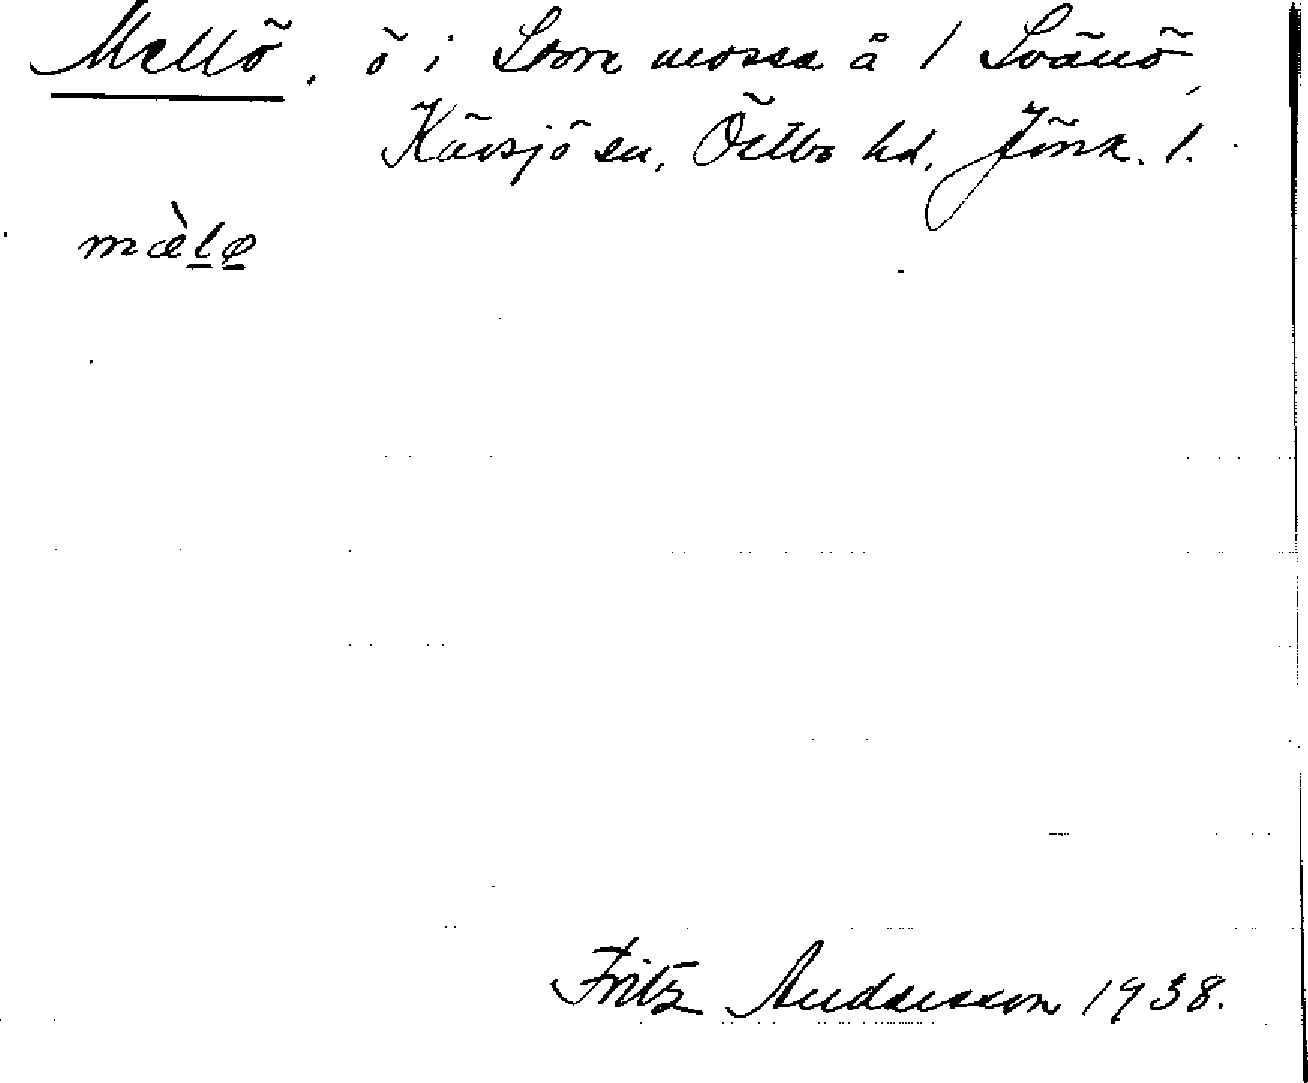 Mellö. ö i Store mosse å 1 Svänö,
Kävsjö sn, Östbo hd, Jönk. l.
mæ̀l̲ø̲
Fritz Andersson 1938.